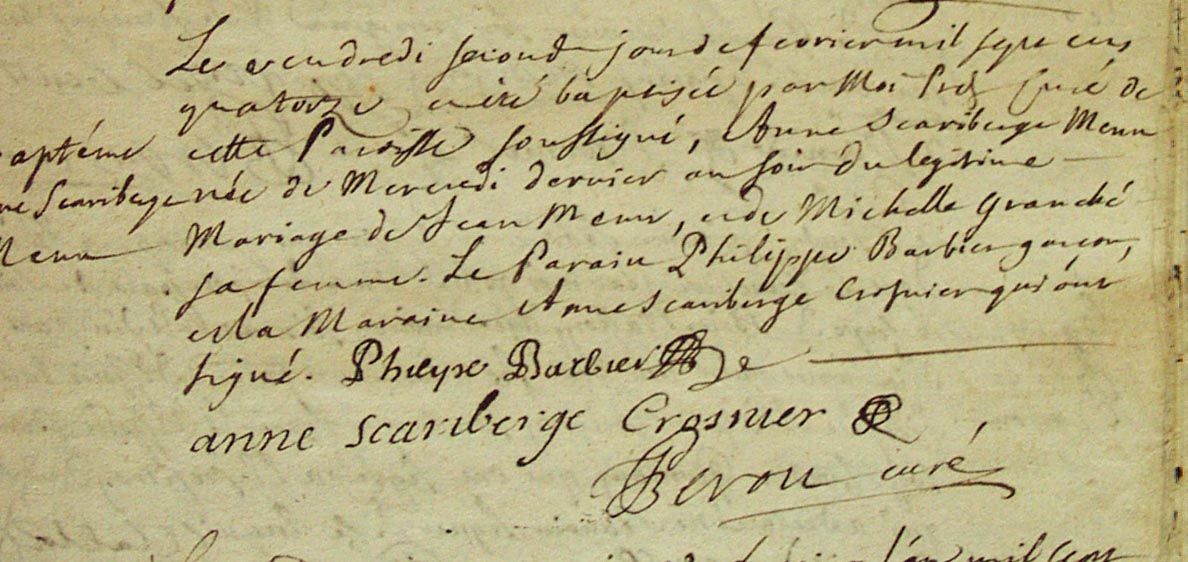 Le vendredi second jour de fevrier mil sept cens
quatorze a été baptisée par Moi Curé de
aptéme cette Paroisse soussigné, Anne Scariberge Menu
ne Scariberge née de Mercredi dernier au soir du legitime
Menu Mariage de Jean Menu, et de Michelle Granché
sa femme. Le Parain Philippe Barbier garçon,
et la Maraine Anne Scariberge Crosnier qui ont
signé. Phileype Barbier
anne scariberge Crosnier
Beron curé
l'an mil sept